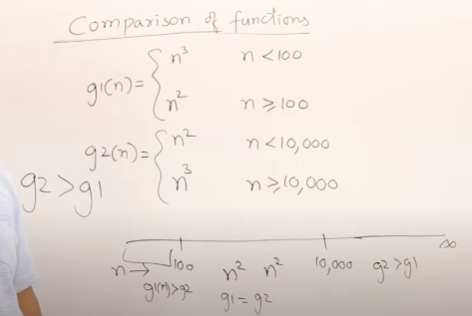 Comparison of functions
g1(n) = { n³ n < 100
n² n ≥ 100
g2(n) = { n² n < 10,000
n³ n ≥ 10,000
g2 > g1
n → 100 n² n² 10,000 g2 > g1 ∞
g1(n) > g2 g1 = g2